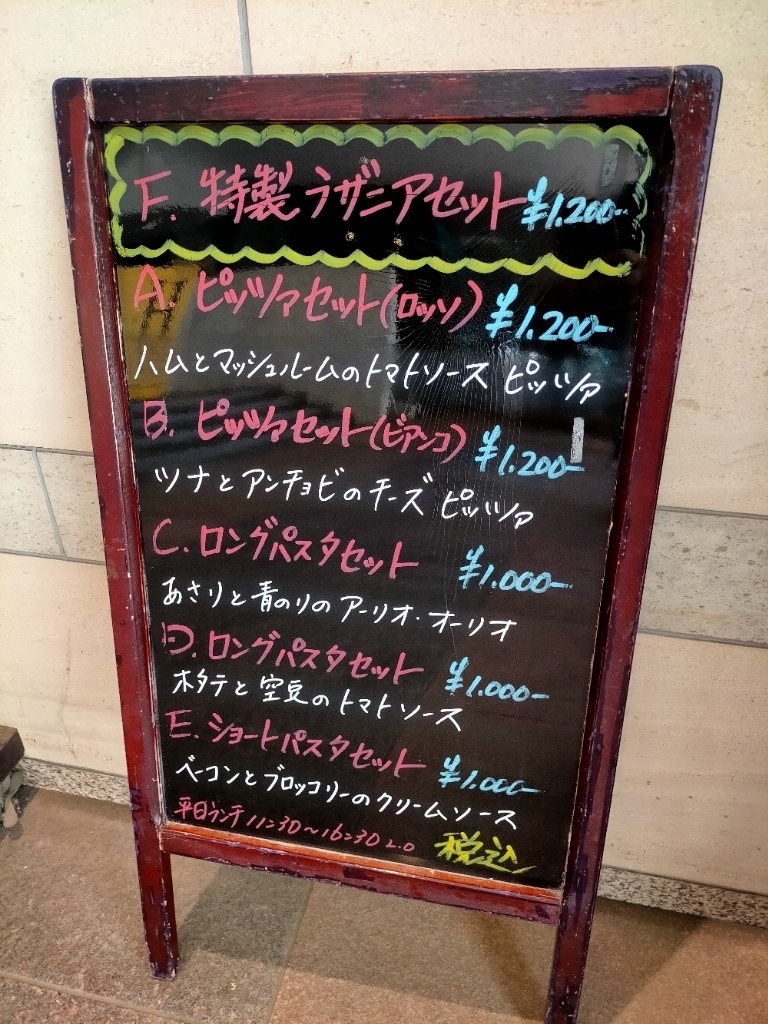 F. 特製ラザニアセット ¥1.200-
A. ピッツァセット(ロッソ) ¥1.200-
ハムとマッシュルームのトマトソース ピッツァ
B. ピッツァセット(ビアンコ) ¥1.200-
ツナとアンチョビのチーズ ピッツァ
C. ロングパスタセット ¥1.000-
あさりと青のりのアーリオ・オーリオ
D. ロングパスタセット ¥1.000-
ホタテと空豆のトマトソース
E. ショートパスタセット ¥1.000-
ベーコンとブロッコリーのクリームソース
平日ランチ 11:30～16:30 L.O 税込